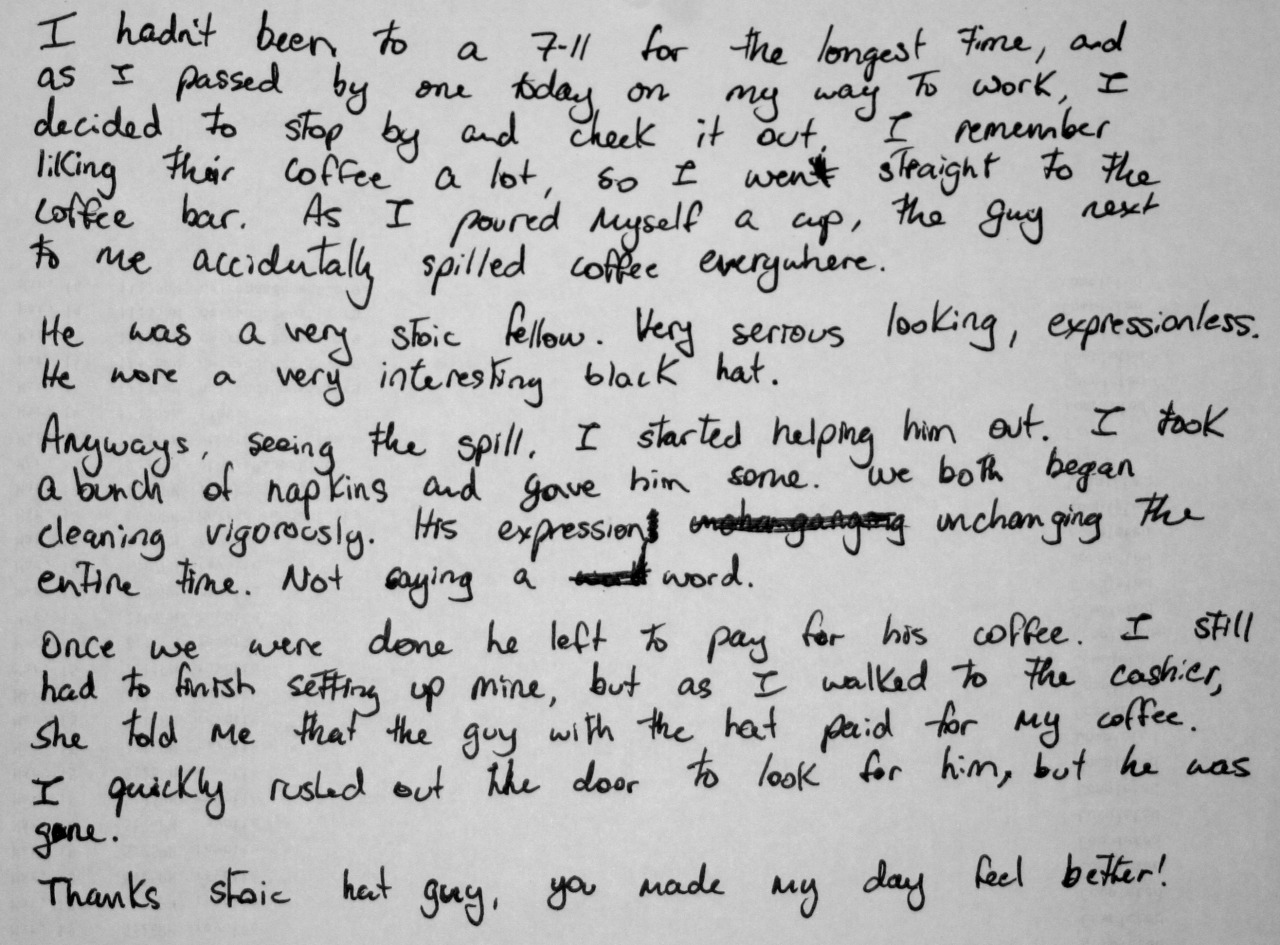 I hadn't been to a 7-11 for the longest time, and
as I passed by one today on my way to work, I
decided to stop by and check it out. I remember
liking their coffee a lot, so I went straight to the
coffee bar. As I poured myself a cup, the guy next
to me accidutally spilled coffee everywhere.
He was a very stoic fellow. Very serious looking, expressionless.
He wore a very interesting black hat.
Anyways, seeing the spill, I started helping him out. I took
a bunch of napkins and gave him some. We both began
cleaning vigorously. His expression unchanging the
entire time. Not saying a word.
Once we were done he left to pay for his coffee. I still
had to finish setting up mine, but as I walked to the cashier,
she told me that the guy with the hat paid for my coffee.
I quickly rushed out the door to look for him, but he was
gone.
Thanks stoic hat guy, you made my day feel better!